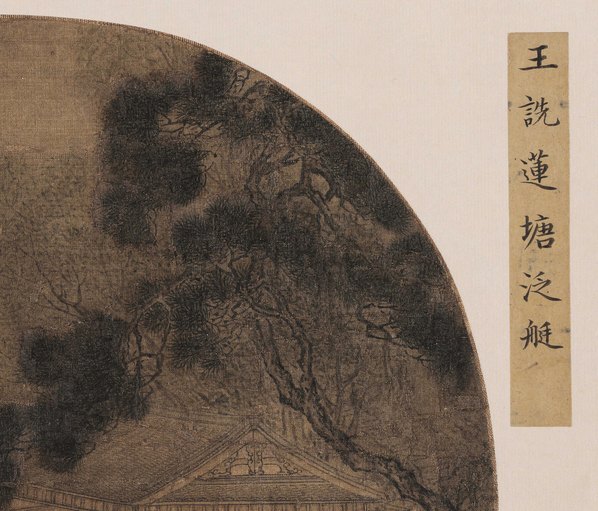 王詵蓮塘泛艇